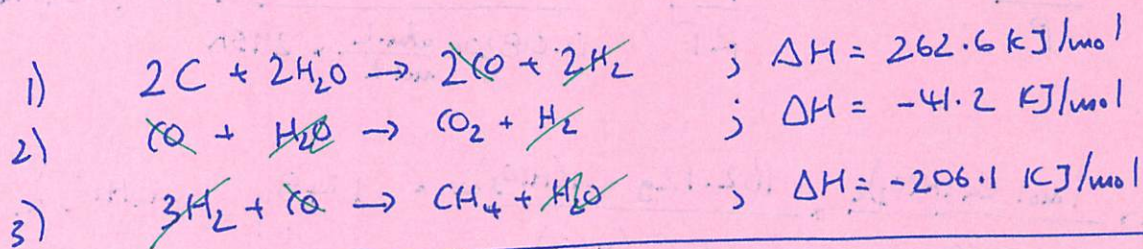 1) 2C + 2H₂O → 2CO + 2H₂ ; ΔH = 262.6 KJ/mol
2) CO + H₂O → CO₂ + H₂ ; ΔH = -41.2 KJ/mol
3) 3H₂ + CO → CH₄ + H₂O ; ΔH = -206.1 KJ/mol